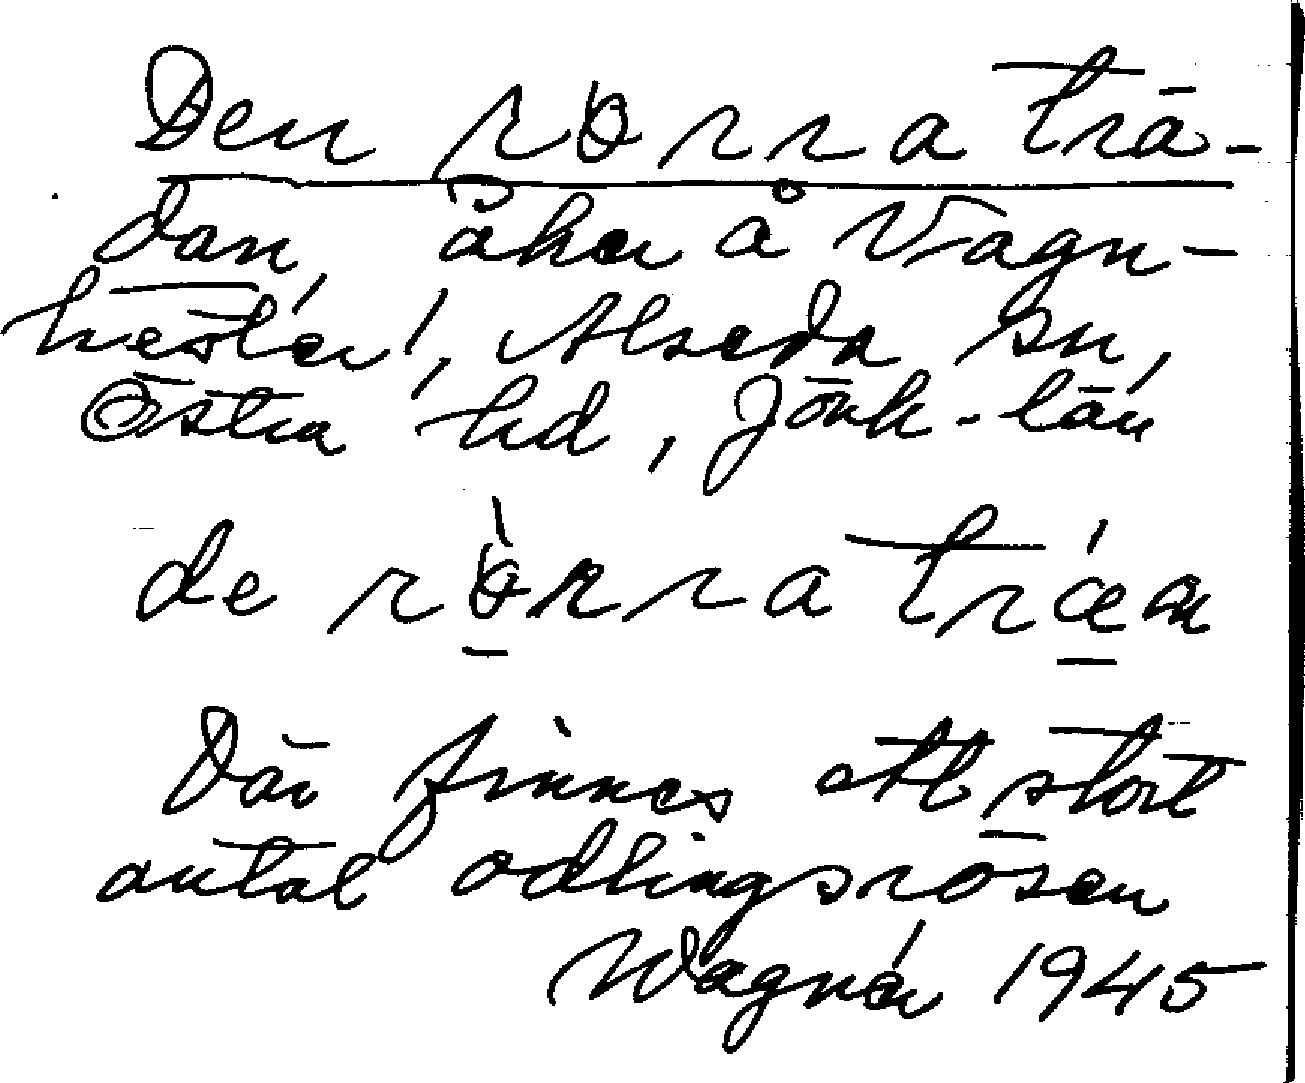 Den rörra trä-
dan, åker å Vagn-
hester, Alseda sn,
Östra hd, Jönk-län
de rörra træn
Där finnes ett stort
antal odlingsrösen
Wagnér 1945